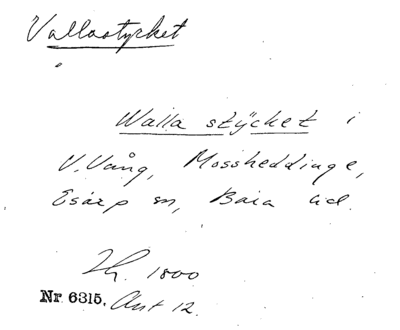 Vallastycket
Walla stÿcket i
V. Vång, Mossheddinge,
Esarp sn, Bara hd.
Nr. 6315.
1800
Akt 12.